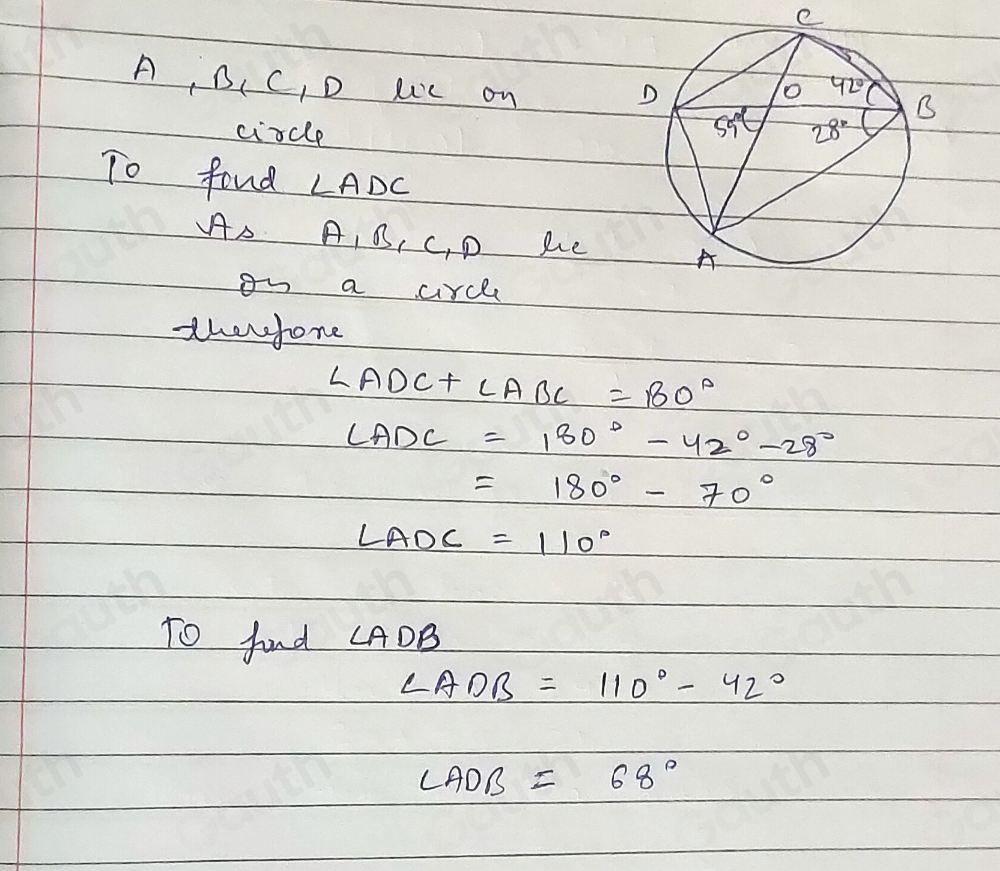 A, B, C, D lie on
circle
To find ∠ADC
As A, B, C, D lie
on a circle
therefore
∠ADC + ∠ABC = 180°
∠ADC = 180° - 42° - 28°
= 180° - 70°
∠ADC = 110°
To find ∠ADB
∠ADB = 110° - 42°
∠ADB = 68°
C
D
O
42°
B
28°
A